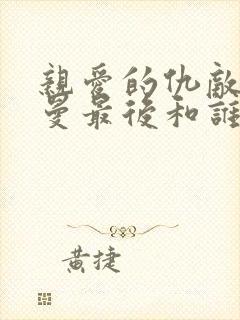 親愛的仇敵
曼最後和誰
黃捷